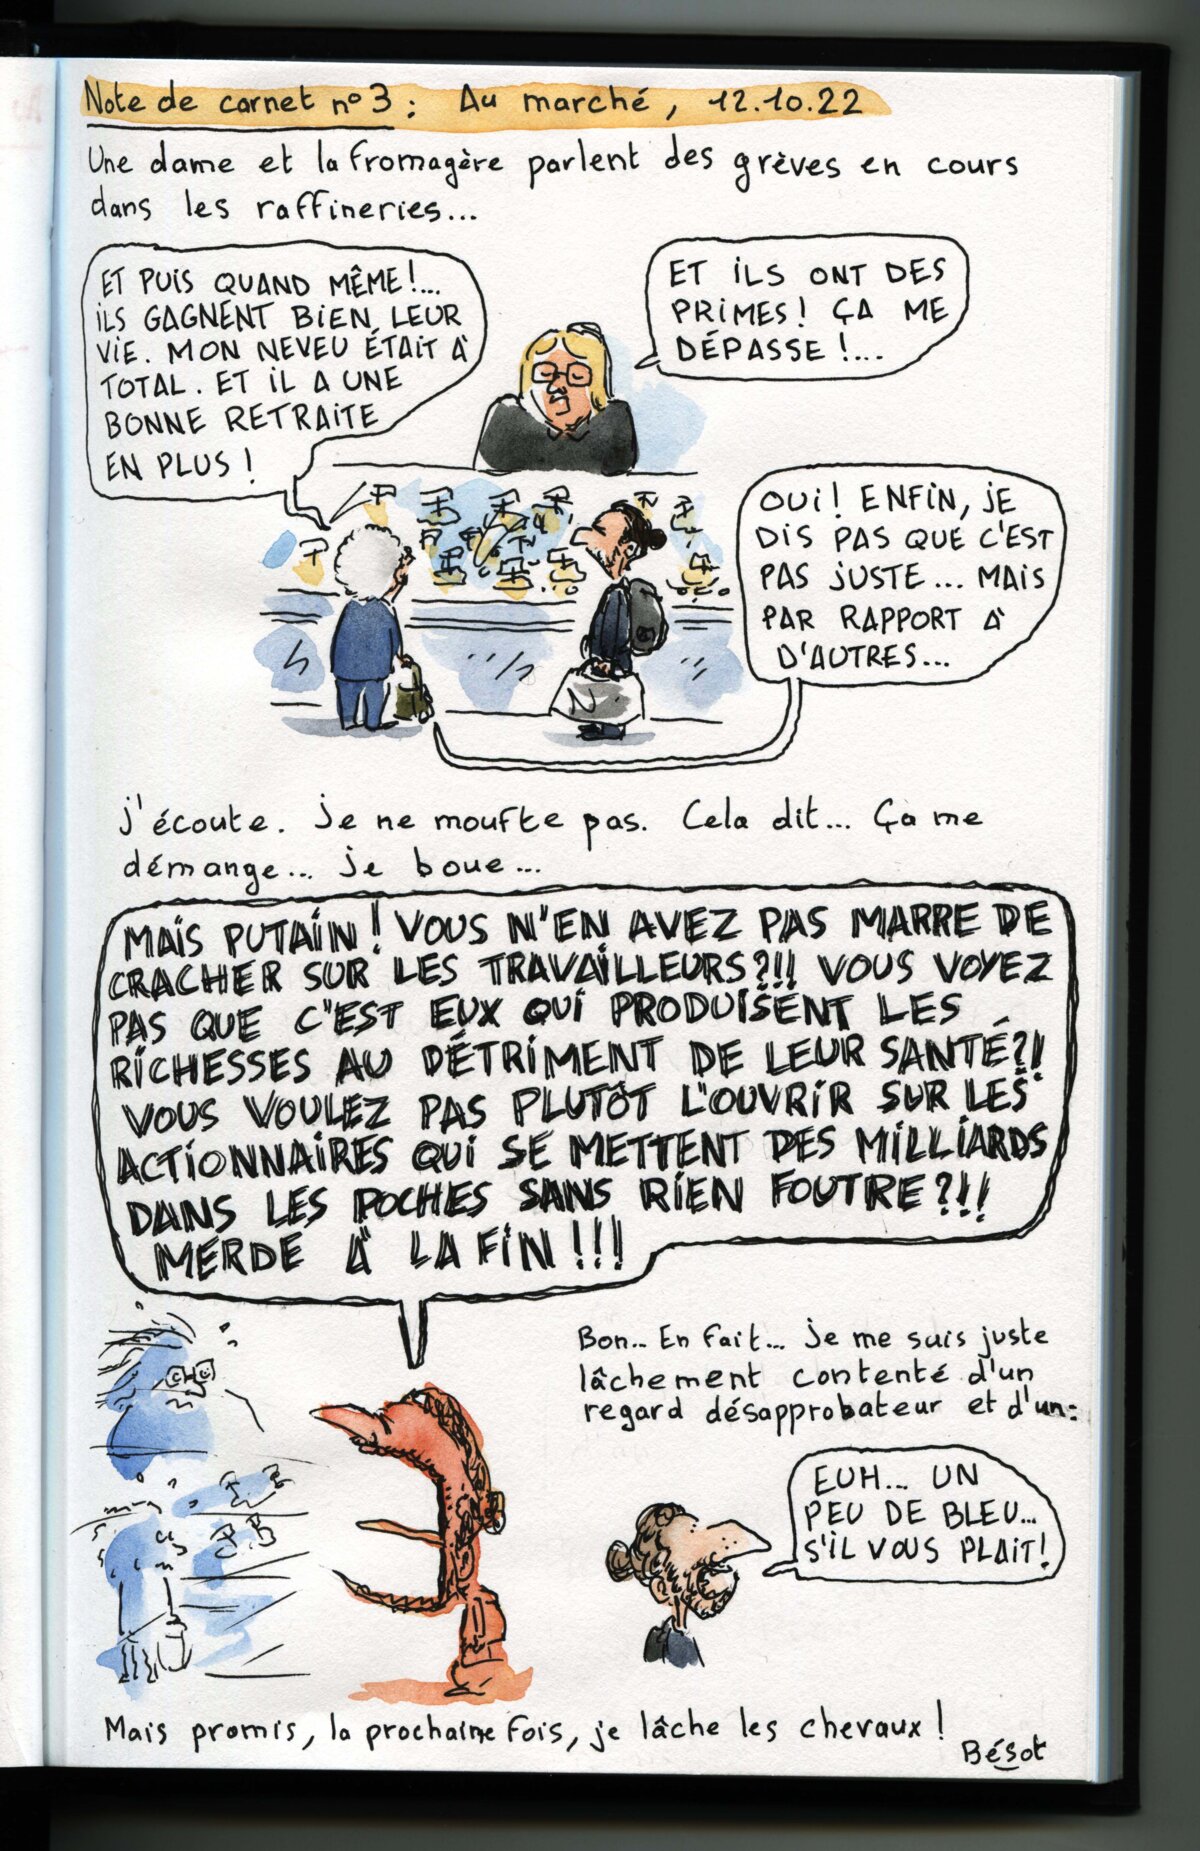 Note de carnet n°3 : Au marché, 12.10.22
Une dame et la fromagère parlent des grèves en cours
dans les raffineries...
ET PUIS QUAND MÊME !...
ILS GAGNENT BIEN LEUR
VIE. MON NEVEU ÉTAIT À
TOTAL. ET IL A UNE
BONNE RETRAITE
EN PLUS !
ET ILS ONT DES
PRIMES ! ÇA ME
DÉPASSE !...
OUI ! ENFIN, JE
DIS PAS QUE C'EST
PAS JUSTE... MAIS
PAR RAPPORT À
D'AUTRES...
N
J'écoute. Je ne moufte pas. Cela dit... Ça me
démange... Je boue...
MAIS PUTAIN ! VOUS N'EN AVEZ PAS MARRE DE
CRACHER SUR LES TRAVAILLEURS ?!!! VOUS VOYEZ
PAS QUE C'EST EUX QUI PRODUISENT LES
RICHESSES AU DÉTRIMENT DE LEUR SANTÉ ?!
VOUS VOULEZ PAS PLUTÔT L'OUVRIR SUR LES
ACTIONNAIRES QUI SE METTENT DES MILLIARDS
DANS LES POCHES SANS RIEN FOUTRE ?!!!
MERDE À LA FIN !!!
Bon... En fait... Je me suis juste
lâchement contenté d'un
regard désapprobateur et d'un :
EUH... UN
PEU DE BLEU...
S'IL VOUS PLAIT !
Mais promis, la prochaine fois, je lâche les chevaux !
Bésot